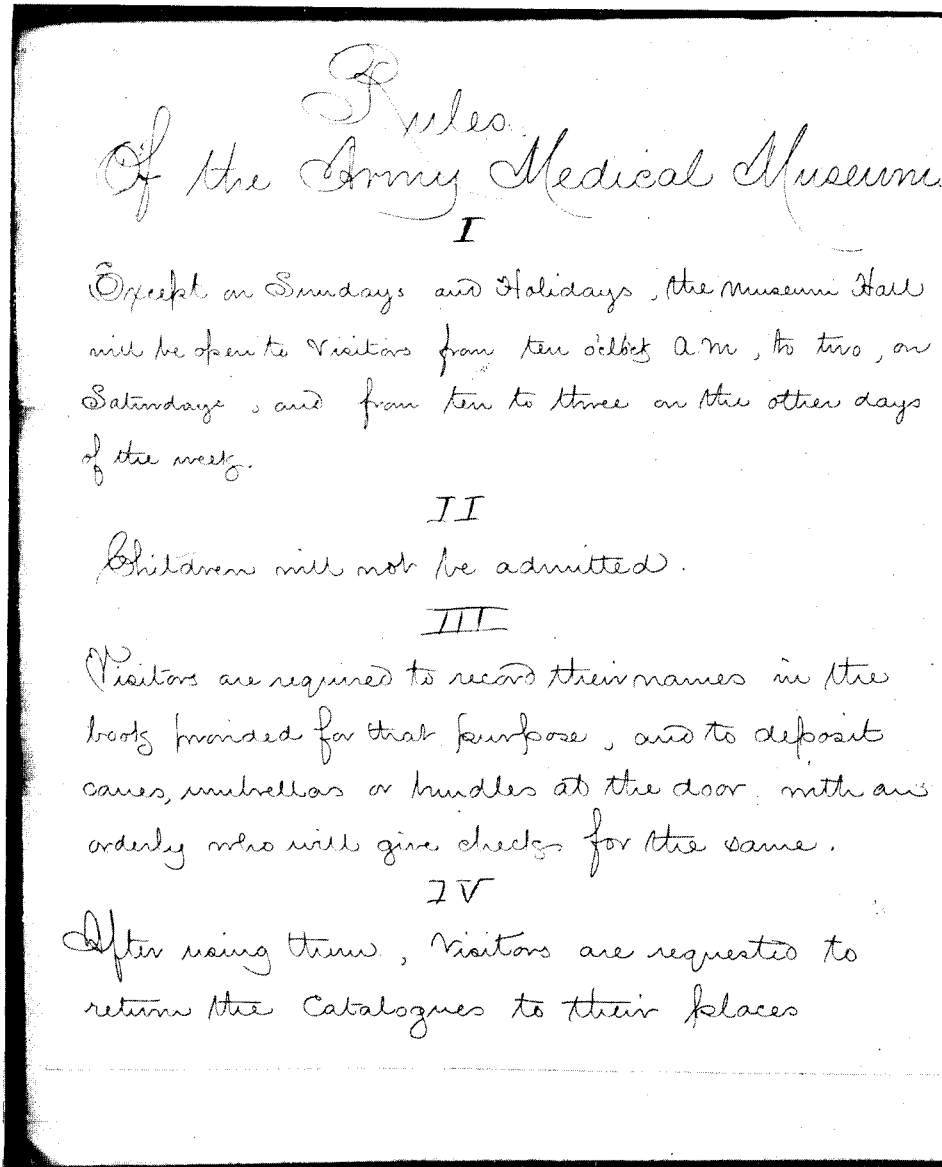 Rules
Of the Army Medical Museum
I
Except on Sundays and Holidays, the Museum Hall
will be open to Visitors from ten o'clock A.M, to two, on
Saturdays, and from ten to three on the other days
of the week.
II
Children will not be admitted.
III
Visitors are required to record their names in the
book provided for that purpose, and to deposit
canes, umbrellas or bundles at the door with an
orderly who will give checks for the same.
IV
After using them, Visitors are requested to
return the Catalogues to their places